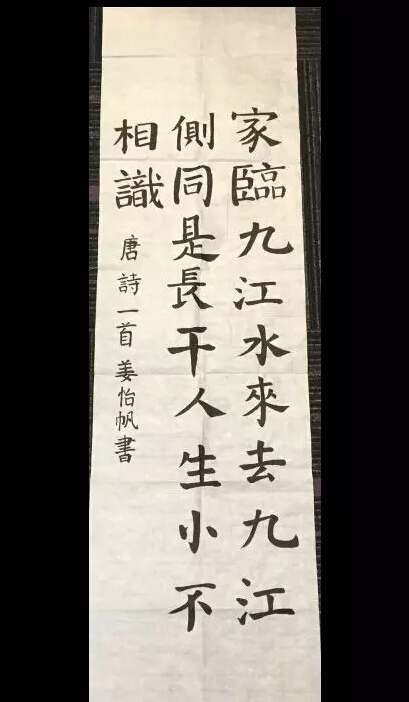 家臨九江水來去九江
側同是長干人生小不
相識
唐詩一首姜怡帆書